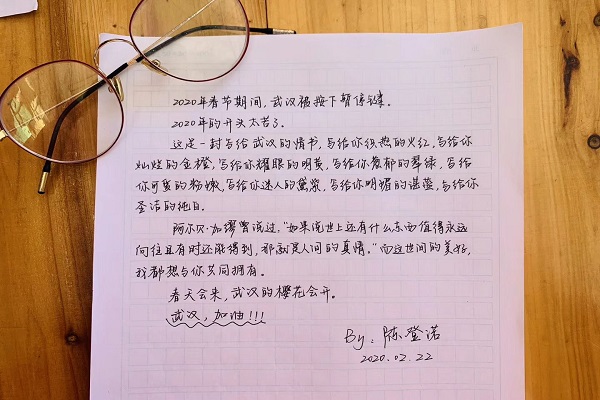 2020年春节期间，武汉被按下暂停键。
2020年的开头太苦了。
这是一封写给武汉的情书，写给你炽热的火红，写给你
灿烂的金橙，写给你耀眼的明黄，写给你葱郁的翠绿，写给
你可爱的粉嫩，写给你迷人的黛紫，写给你明媚的湛蓝，写给你
圣洁的纯白。
阿尔贝·加缪曾说过，“如果说世上还有什么东西值得永远
向往且有时还能得到，那就是人间的真情。”而这世间的美好，
我都想与你共同拥有。
春天会来，武汉的樱花会开。
武汉，加油!!!
By: 陈登诺
2020.02.22